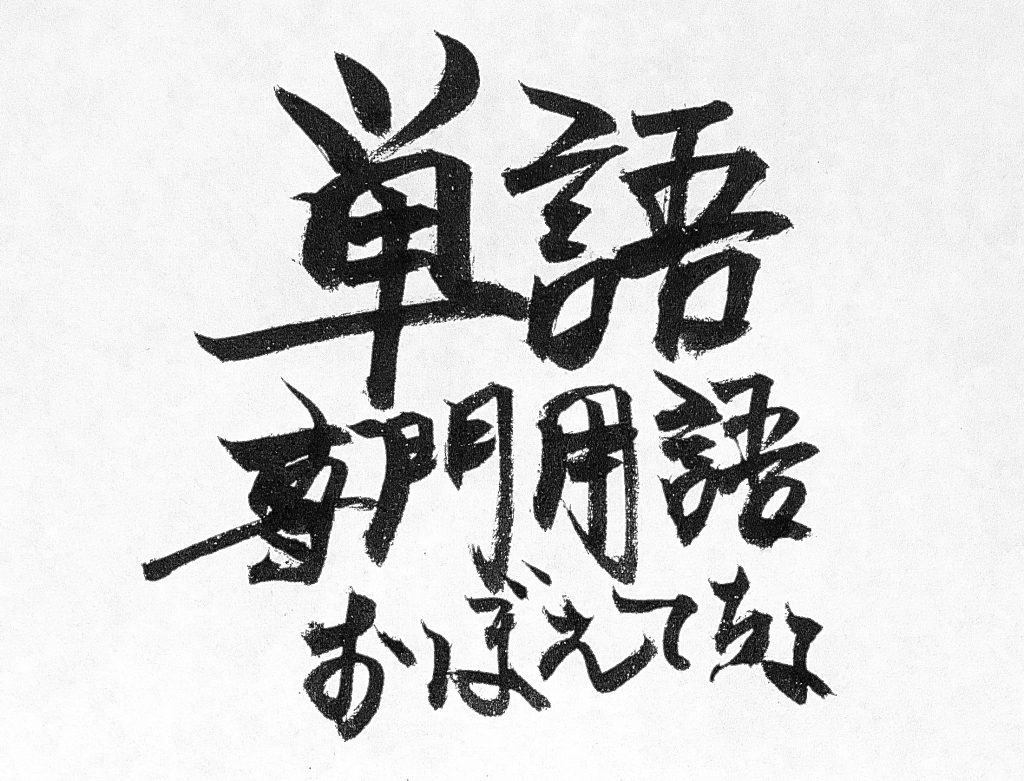 単語
専門用語
おぼえてね